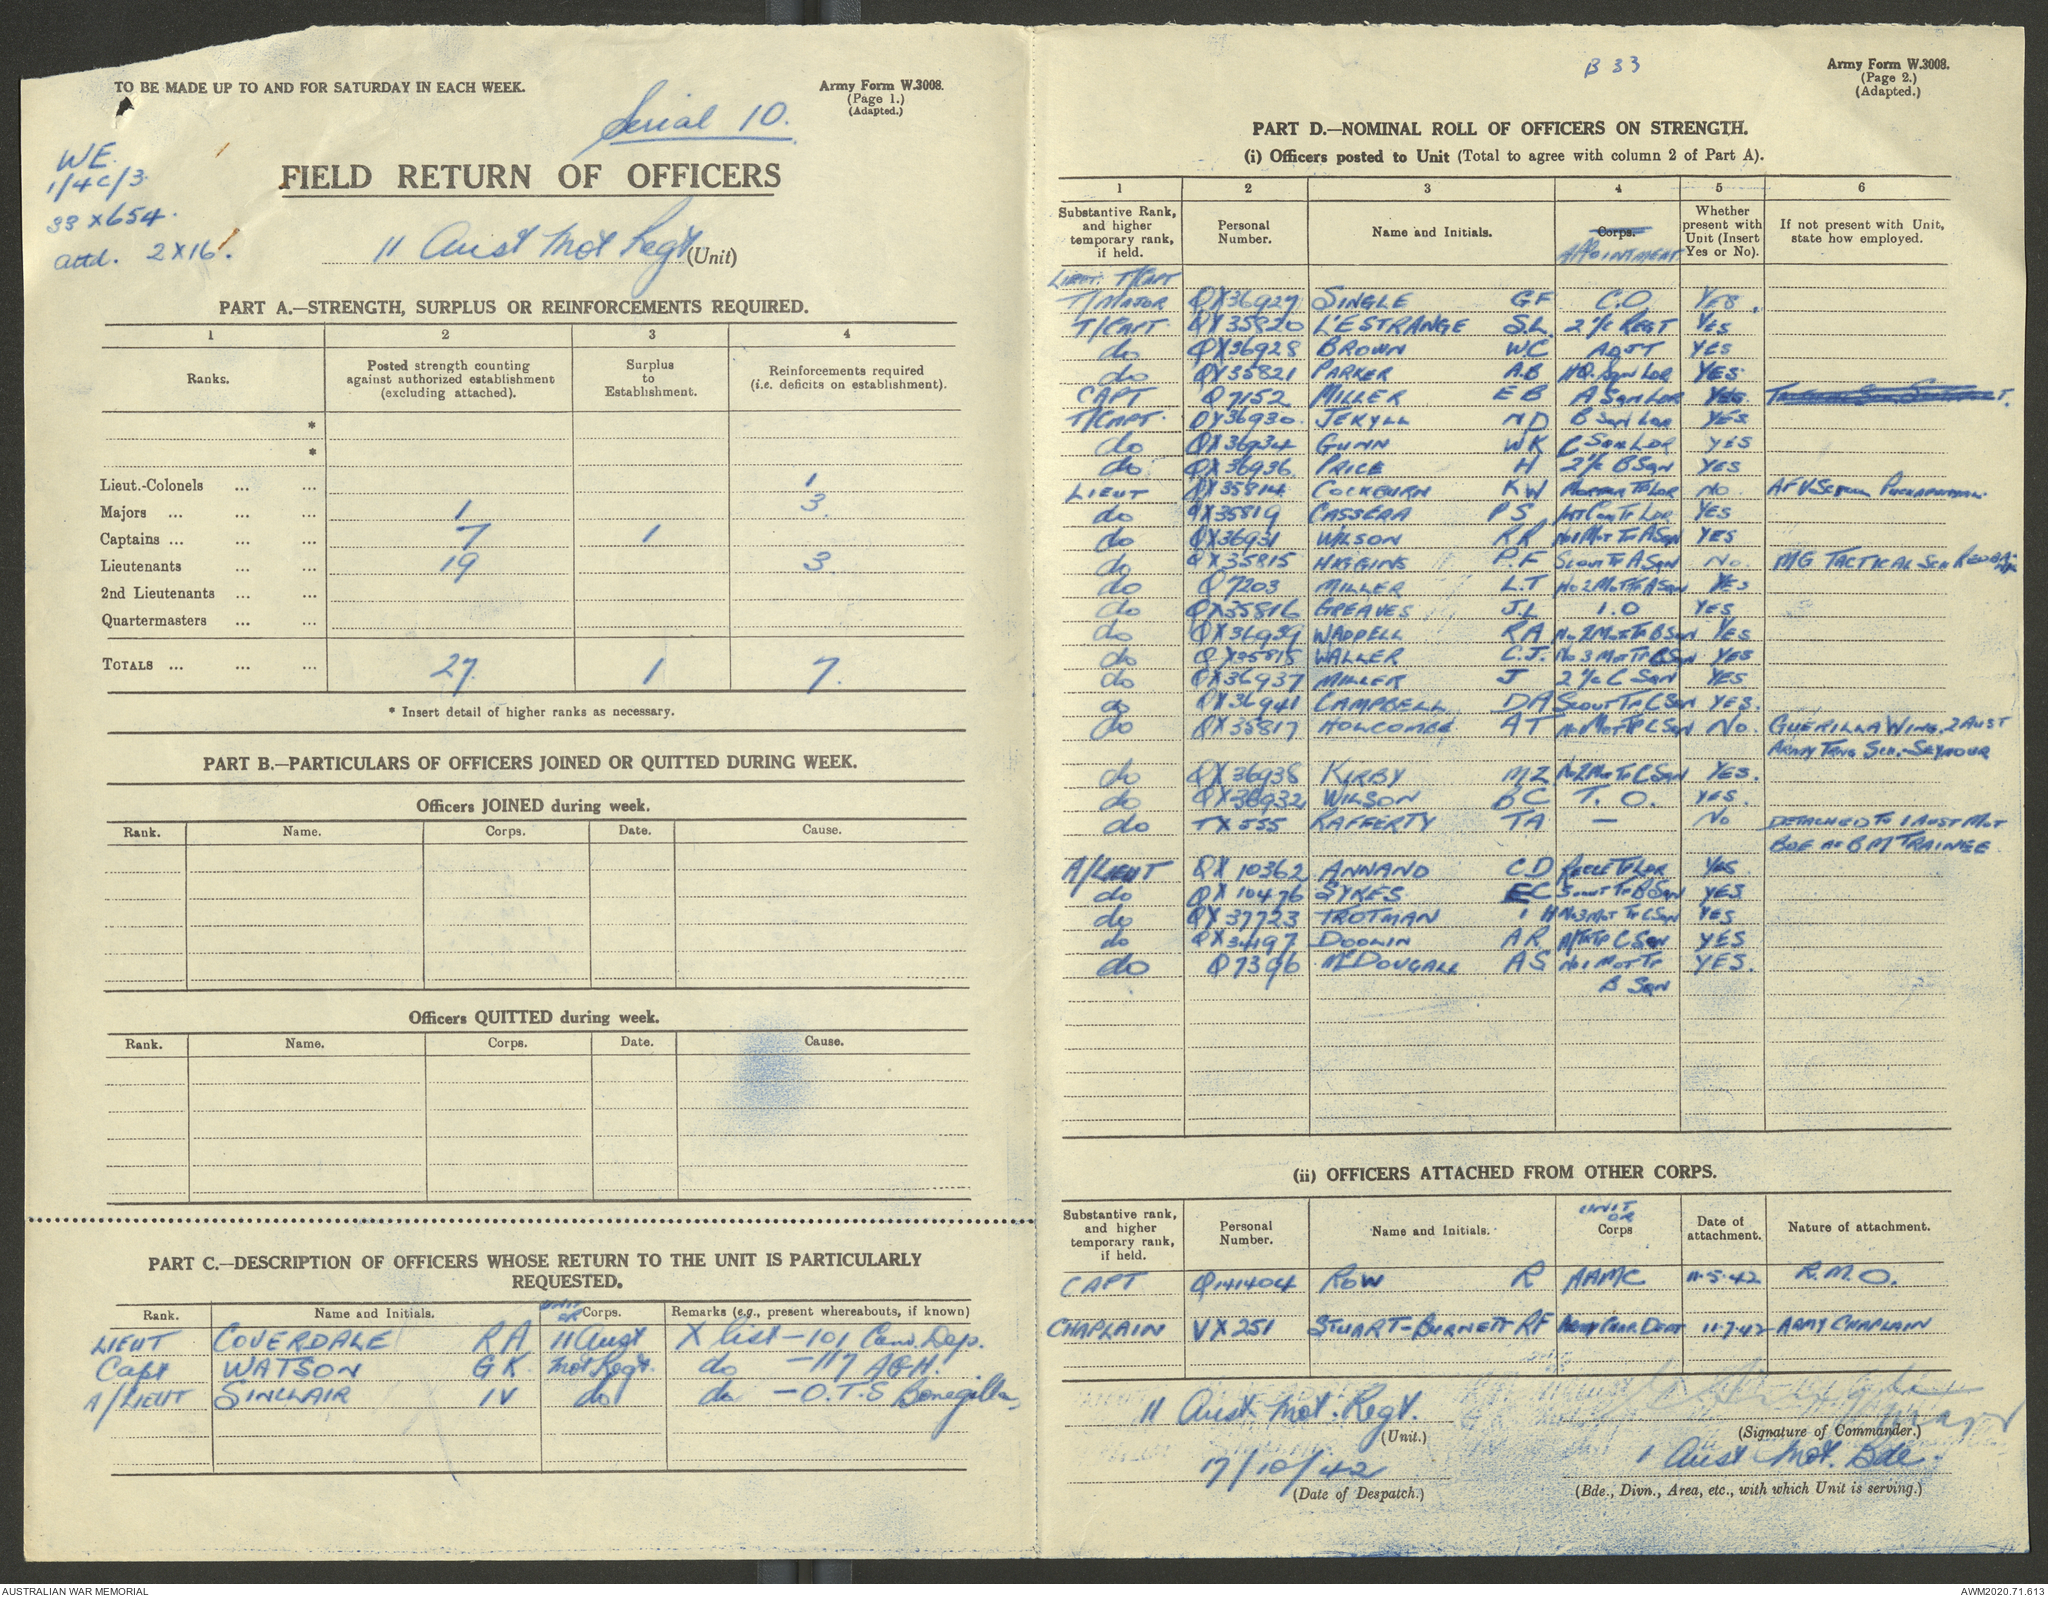 TO BE MADE UP TO AND FOR SATURDAY IN EACH WEEK.
Army Form W.3008.
(Page 1.)
(Adapted.)
Serial 10.
WE.
1/4c/3
33 x 654.
attd. 2 x 16.
FIELD RETURN OF OFFICERS
11 Aust Mot Regt (Unit)
PART A.—STRENGTH, SURPLUS OR REINFORCEMENTS REQUIRED.
1 2 3 4
Ranks. Posted strength counting against authorized establishment (excluding attached). Surplus to Establishment. Reinforcements required (i.e. deficits on establishment).
*
*
Lieut.-Colonels ... ... 1
Majors ... ... ... 1 3
Captains ... ... ... 7 1
Lieutenants ... ... 19 3
2nd Lieutenants ... ...
Quartermasters ... ...
TOTALS ... ... ... 27. 1 7.
* Insert detail of higher ranks as necessary.
PART B.—PARTICULARS OF OFFICERS JOINED OR QUITTED DURING WEEK.
Officers JOINED during week.
Rank. Name. Corps. Date. Cause.
Officers QUITTED during week.
Rank. Name. Corps. Date. Cause.
PART C.—DESCRIPTION OF OFFICERS WHOSE RETURN TO THE UNIT IS PARTICULARLY
REQUESTED.
Rank. Name and Initials. UNIT OR Corps. Remarks (e.g., present whereabouts, if known)
LIEUT COVERDALE RA 11 Aust X list - 101 Conv. Dep.
Capt WATSON GK Mot Regt. do - 117 AGH.
A/LIEUT SINCLAIR IV do do - O.T.S Bonegilla
B 33
Army Form W.3008.
(Page 2.)
(Adapted.)
PART D.—NOMINAL ROLL OF OFFICERS ON STRENGTH.
(i) Officers posted to Unit (Total to agree with column 2 of Part A).
1 2 3 4 5 6
Substantive Rank, and higher temporary rank, if held. Personal Number. Name and Initials. Corps. APPOINTMENT Whether present with Unit (Insert Yes or No). If not present with Unit, state how employed.
LIEUT. T/CAPT
T/MAJOR QX36927 SINGLE GF C.O. YES.
T/CAPT QX35820 L'ESTRANGE S.L. 2 i/c REGT YES
do QX36928 BROWN WC ADJT YES
do QX35821 PARKER A.B HQ. Sqn Ldr YES
CAPT Q7152 MILLER EB A Sqn Ldr YES
T/CAPT QX36930. JEKYLL ND B Sqn Ldr YES
do QX36934 GUNN WK C Sqn LDR YES
do QX36936 PRICE H 2 i/c B Sqn YES
LIEUT QX35814 COCKBURN KW MORTAR TP LDR NO. AFV SCHOOL PUCKAPUNYAL
do QX35819 CASSERA PS YES
do QX36931 WILSON RR No1 MOT TP A Sqn YES
do QX35815 HIGGINS P.F SCOUT TP A Sqn NO. MG TACTICAL SCH
do Q7203 MILLER L.T No 2 MOT TP A Sqn YES
do QX35816 GREAVES J.L I.O YES
do QX36939 WADDELL RA No 2 MOT TP B Sqn YES
do QX35818 WALLER C.J. No 3 MOT TP B Sqn YES
do QX36937 MILLER J 2 i/c C Sqn YES
do QX36941 CAMPBELL DA SCOUT TP C Sqn YES.
do QX35817 HOLCOMBE AT No1 MOT TP C Sqn NO. GUERILLA WING, 2 AUST
ARMY TRNG SCH.- SEYMOUR
do QX36938 KIRBY MZ No2 MOT TP C Sqn YES.
do QX36932 WILSON BC T.O. YES.
do TX555 RAFFERTY TA — NO DETACHED TO 1 AUST MOT
BDE AS BM TRAINEE
A/LIEUT QX10362 ANNAND CD RECCE TP LDR YES
do QX10476 SYKES EC SCOUT TP B Sqn YES
do QX37723 TROTMAN I H No3 MOT TP C Sqn YES
do QX34197 DOOLIN AR C Sqn YES
do Q7396 McDOUGALL AS No1 MOT TP YES.
B Sqn
(ii) OFFICERS ATTACHED FROM OTHER CORPS.
Substantive rank, and higher temporary rank, if held. Personal Number. Name and Initials. UNIT OR Corps Date of attachment. Nature of attachment.
CAPT Q141404 ROW R AAMC 11.5.42 R.M.O.
CHAPLAIN VX251 STUART-BURNETT RF 11.7.42 ARMY CHAPLAIN
11 Aust. Mot. Regt.
(Unit.)
Major
(Signature of Commander.)
17/10/42
(Date of Despatch.)
1 Aust Mot. Bde.
(Bde., Divn., Area, etc., with which Unit is serving.)
AUSTRALIAN WAR MEMORIAL
AWM2020.71.613